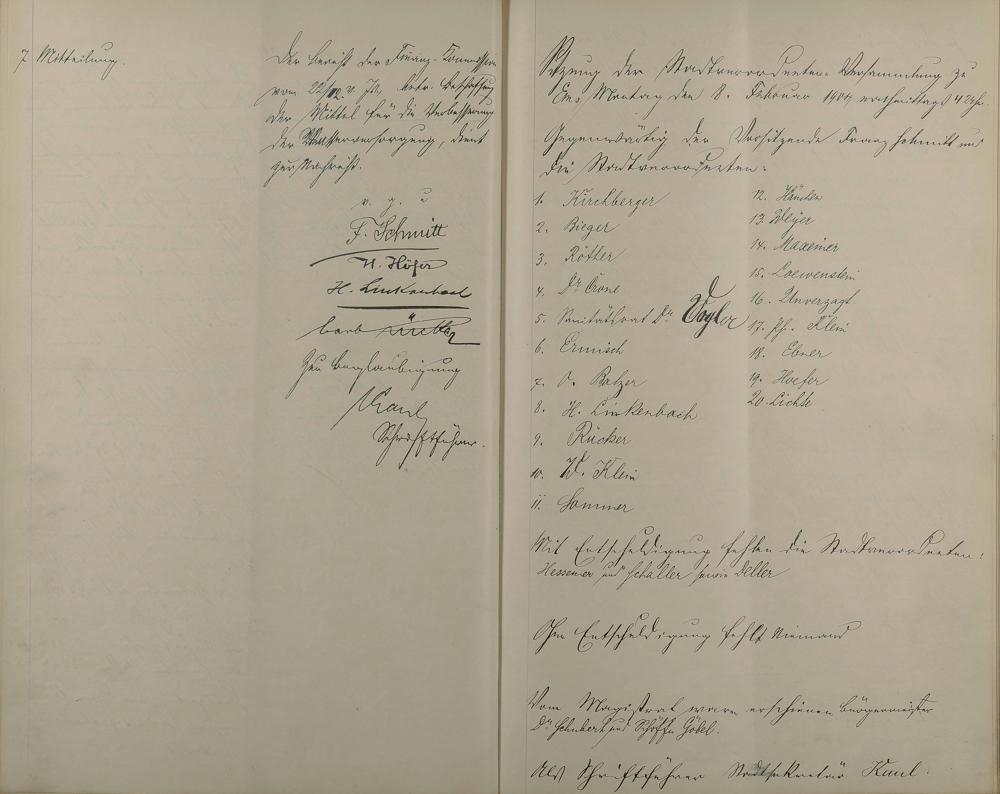 7 Mitteilung.
Der Bericht der Finanz-Kommission
vom 22/12 v. Js., betr. Beschaffung
der Mittel für die Verbesserung
der Wasserversorgung, dient
zur Nachricht.
v. g. u
F. Schmitt
H. Höfer
H. Linkenbach
Zur Beglaubigung
Kaul
Schriftführer.
Sitzung der Stadtverordneten-Versammlung zu
Ems, Montag den 8. Februar 1904 nachmittags 4 Uhr.
Gegenwärtig der Vorsitzende Franz Schmitt und
die Stadtverordneten:
1. Kirchberger
2. Bieger
3. Rötter
4. Dr Crone
5. Sanitätsrat Dr Vogler
6. Ermisch
7. O. Balzer
8. H. Linkenbach
9. Rücker
10. W. Klein
11. Sommer
12. Häuchen
13. Weyer
14. Maxeiner
15. Loewenstein
16. Unverzagt
17. Ph. Klein
18. Ebner
19. Hoefer
20. Lichte
Mit Entschuldigung fehlen die Stadtverordneten:
Hessemer und Schaller sowie Deller
Ohne Entschuldigung fehlt Niemand
Vom Magistrat waren erschienen Bürgermeister
Dr Schubert und Schöffe Göbel.
Als Schriftführer Stadtsekretär Kaul.